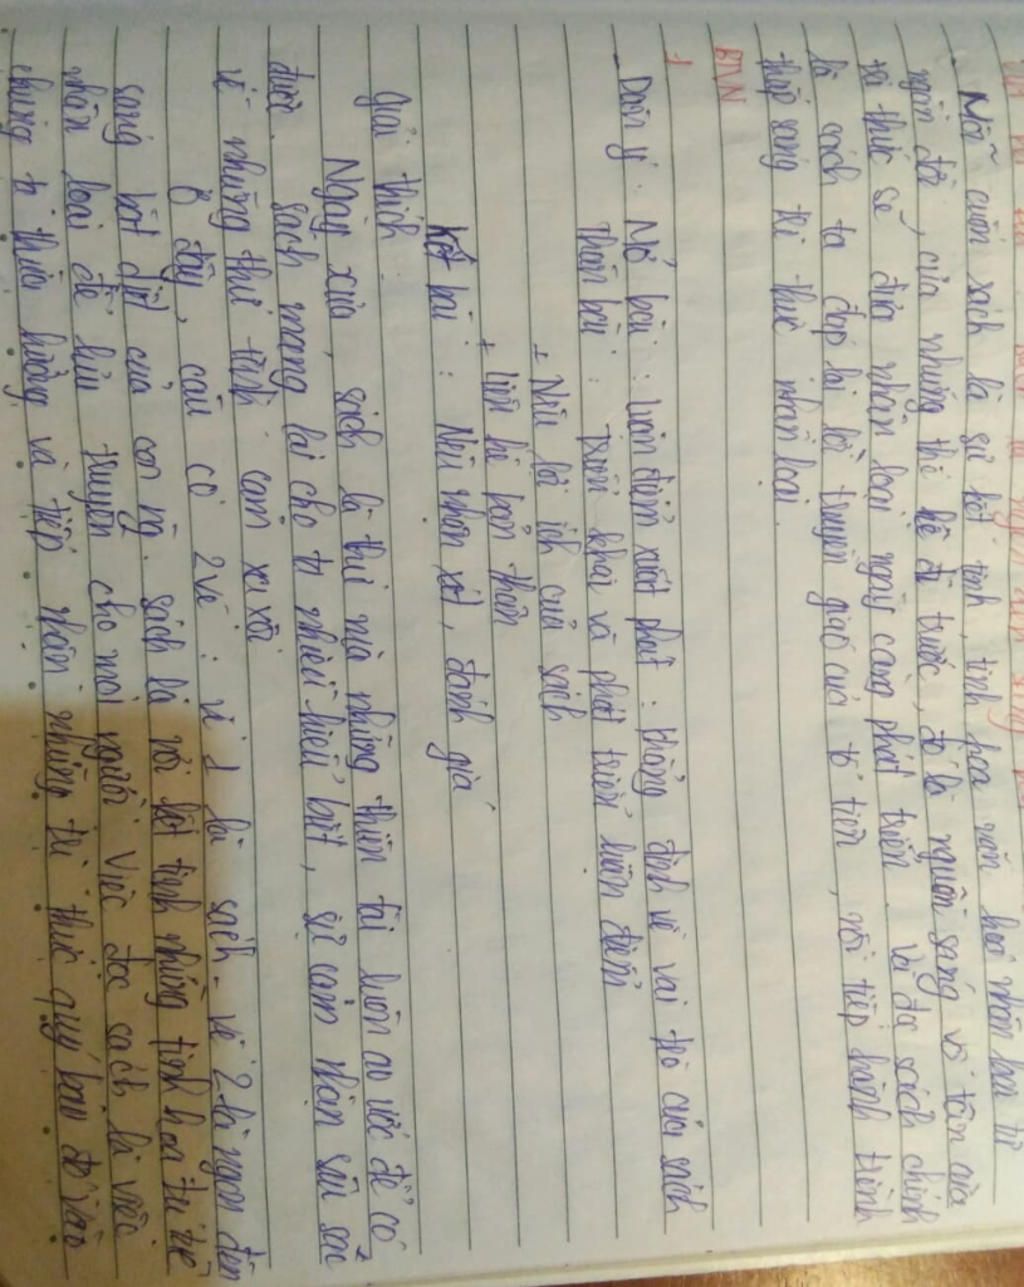 Mỗi cuốn sách là sự kết tinh, tinh hoa văn hoá nhân loại từ
ngàn đời, của những thế hệ đi trước, đó là nguồn sáng vô tận của
tri thức sẽ đưa nhân loại ngày càng phát triển. Và đọc sách chính
là cách ta đáp lại lời truyền giao của tổ tiên, nối tiếp hành trình
thắp sáng tri thức nhân loại.
BTVN
1
- Dàn ý: Mở bài: luận điểm xuất phát: khẳng định về vai trò của sách
Thân bài: Triển khai và phát triển luận điểm
+ Nêu lợi ích của sách
+ liên hệ bản thân
Kết bài: Nêu nhận xét, đánh giá
Giải thích
Ngày xưa, sách là thứ mà những thiên tài luôn ao ước để có
được. sách mang lại cho ta nhiều hiểu biết, sự cảm nhận sâu sắc
về những thứ tình cảm xa xôi
Ở đây, câu có 2 vế: vế 1 là sách - vế 2 là ngọn đèn
sáng bất diệt của con ng. sách là nơi kết tinh những tinh hoa trí tuệ
nhân loại để lưu truyền cho mọi người. Việc đọc sách là việc
chúng ta thừa hưởng và tiếp nhận những tri thức quý báu đó.